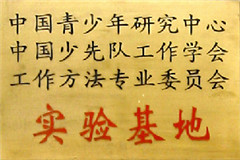 中国青少年研究中心
中国少先队工作学会
工作方法专业委员会
实验基地